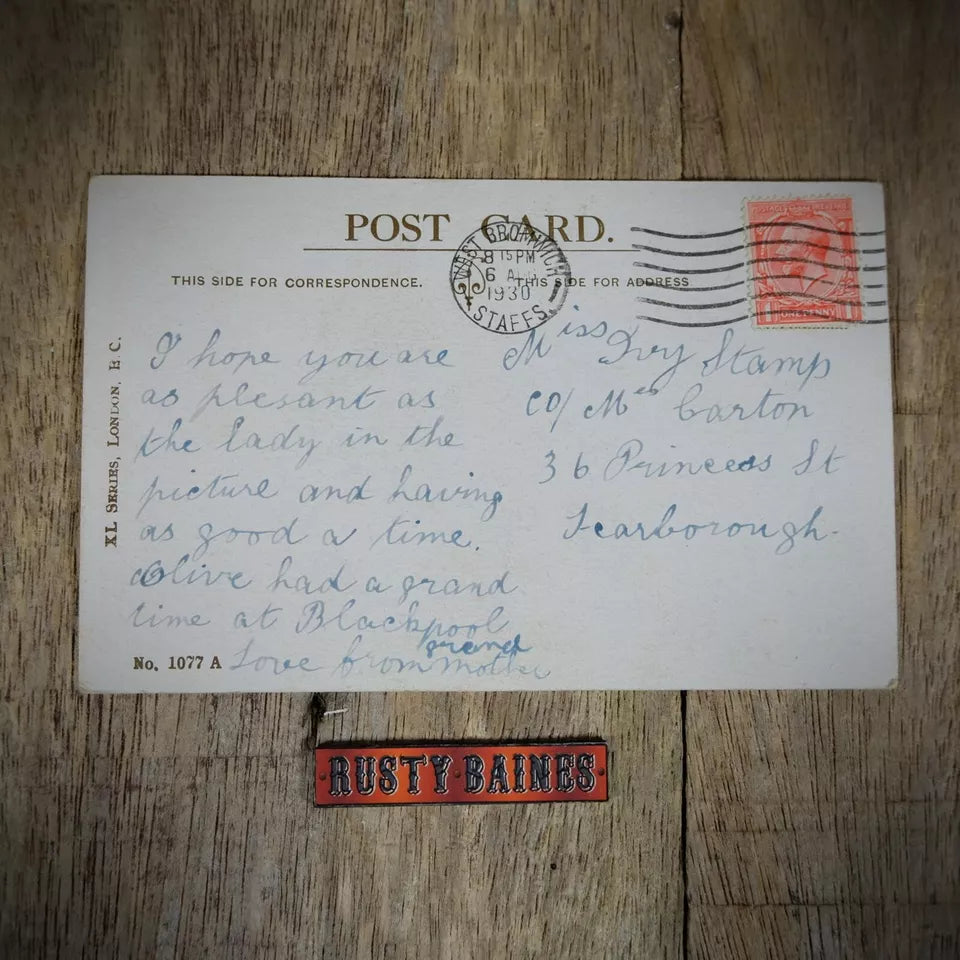 POST CARD.
THIS SIDE FOR CORRESPONDENCE.
THIS SIDE FOR ADDRESS
WEST BROMWICH
8 15 PM
6 AUG
1930
STAFFS.
ONE PENNY
XL SERIES, LONDON, E.C.
I hope you are
as plesant as
the lady in the
picture and having
as good a time.
Olive had a grand
time at Blackpool
Love from grand mother
No. 1077 A
Miss Ivy Stamp
co/ Mrs Carton
36 Princess St
Scarborough.
RUSTY BAINES